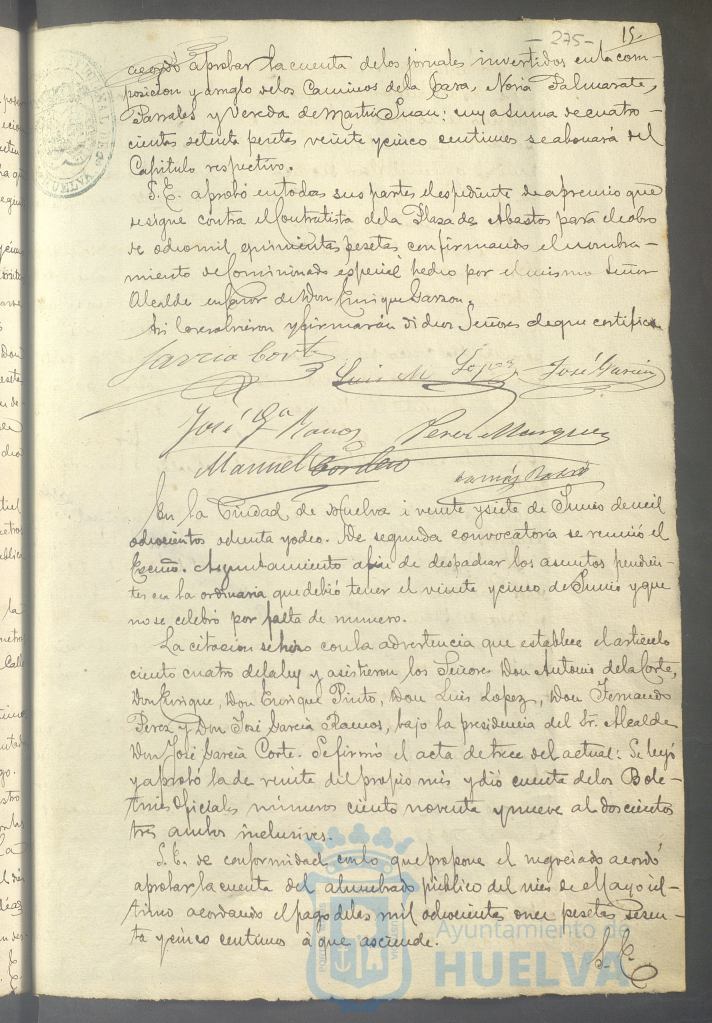 - 275 - 15.
acordó aprobar la cuenta de los jornales invertidos en la com-
posicion y arreglo de los Caminos de la Casa, Noria Palmarate,
Parrales y Vereda de Martin Juan: cuya suma de cuatro-
cientas setenta pesetas veinte y cinco centimos se abonará del
Capitulo respectivo.
S. E. aprobó en todas sus partes el espediente de apremio que
se sigue contra el Contratista de la Plaza de Abastos para el cobro
de ocho mil quinientas pesetas confirmando el nombra-
miento de Comisionado especial hecho por el mismo Señor
Alcalde en favor de Don Enrique Garzon.
Asi lo resolvieron y firmarán dichos Señores de que certifico
Garcia Corte Luis M Lopez José Garcia
José Gª Ramos Perez Marquez
Manuel Cordero
En la Ciudad de Huelva á veinte y siete de Junio de mil
ochocientos ochenta y ocho. De segunda convocatoria se reunió el
Excmo. Ayuntamiento afin de despachar los asuntos pendien-
tes en la ordinaria que debió tener el veinte y cinco de Junio y que
no se celebró por falta de numero.
La citacion se hizo con la advertencia que establece el articulo
ciento cuatro de la ley y asistieron los Señores Don Antonio de la Corte,
Don Enrique, Don Enrique Pinto, Don Luis Lopez, Don Fernando
Perez y Don José Garcia Ramos, bajo la presidencia del Sr. Alcalde
Don José Garcia Corte. Se firmó el acta de trece del actual: Se leyó
y aprobó la de veinte del propio mes y dió cuenta de los Bole-
tines Oficiales numeros ciento noventa y nueve al doscientos
tres ambos inclusives.
S. E. de conformidad con lo que propone el negociado acordó
aprobar la cuenta del alumbrado público del mes de Mayo úl-
timo acordando el pago de las mil ochocientas once pesetas sesen-
ta y cinco centimos á que asciende.
S. E.
Ayuntamiento de
HUELVA